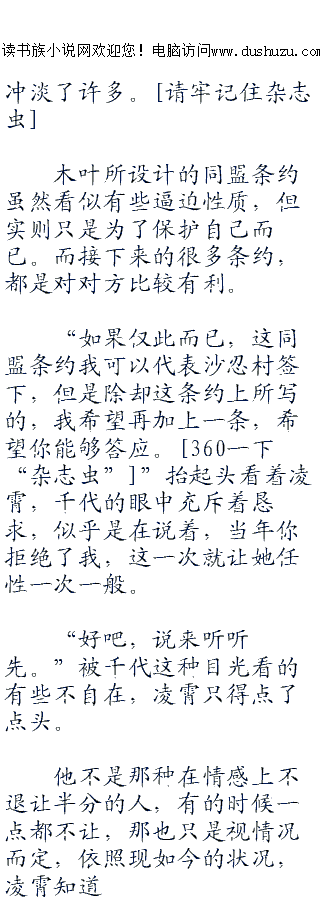 读书族小说网欢迎您！电脑访问www.dushuzu.com
冲淡了许多。[请牢记住杂志
虫]
木叶所设计的同盟条约
虽然看似有些逼迫性质，但
实则只是为了保护自己而
已。而接下来的很多条约，
都是对对方比较有利。
“如果仅此而已，这同
盟条约我可以代表沙忍村签
下，但是除却这条约上所写
的，我希望再加上一条，希
望你能够答应。[360一下
“杂志虫”]”抬起头看着凌
霄，千代的眼中充斥着恳
求，似乎是在说着，当年你
拒绝了我，这一次就让她任
性一次一般。
“好吧，说来听听
先。”被千代这种目光看的
有些不自在，凌霄只得点了
点头。
他不是那种在情感上不
退让半分的人，有的时候一
点都不让，那也只是视情况
而定，依照现如今的状况，
凌霄知道